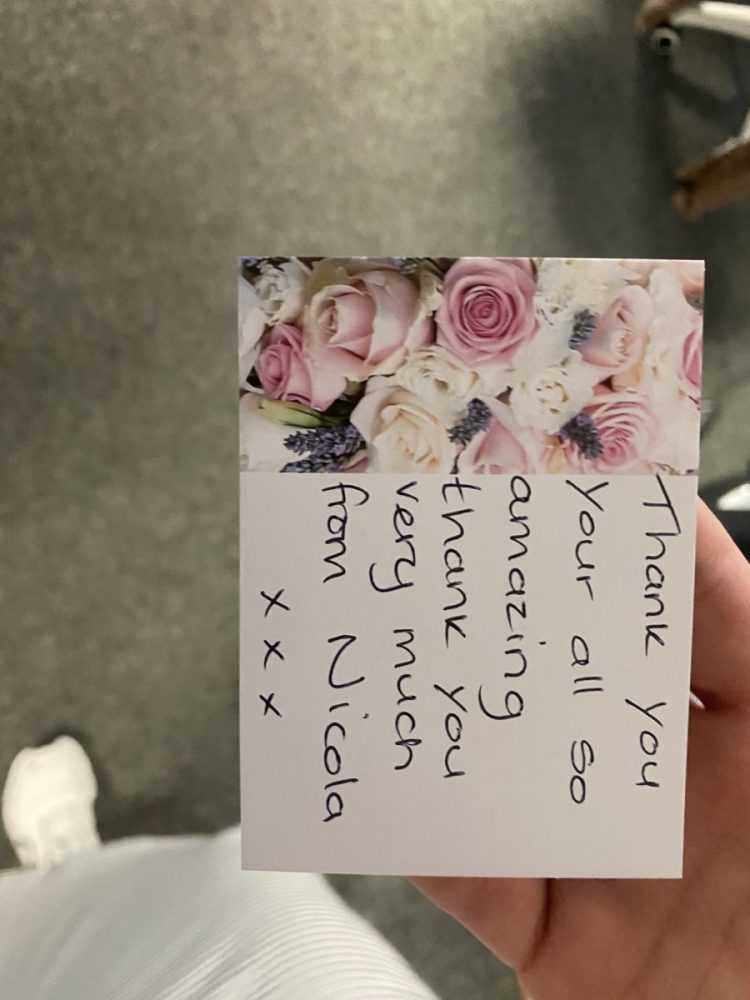 Thank you
your all so
amazing
thank you
very much
from Nicola
x x x